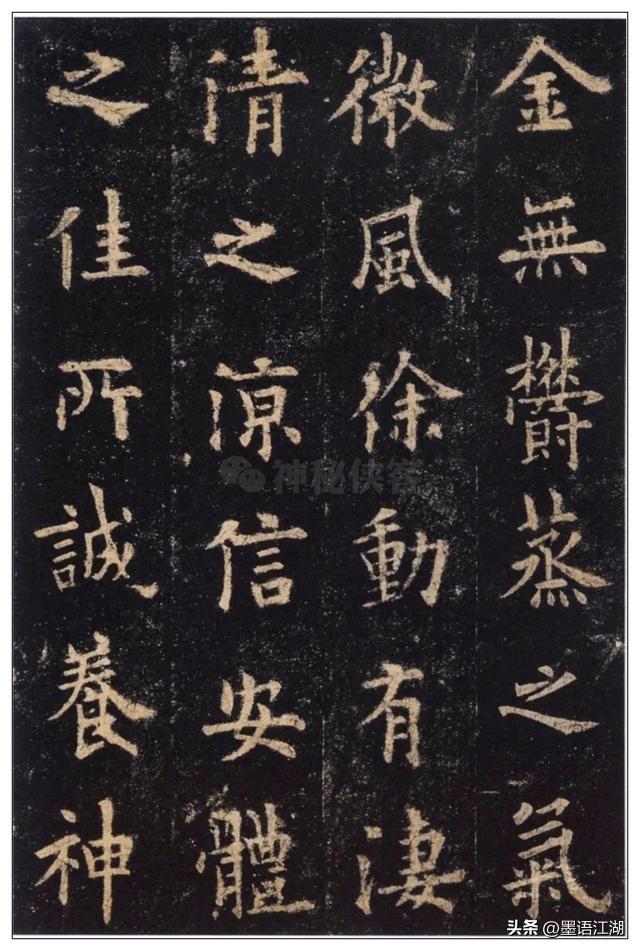 金無鬱蒸之氣
微風徐動有淒
清之涼信安體
之佳所誠養神
神秘侠客
头条 @墨语江湖